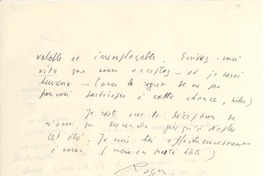 valable et irremplaçable. Écrivez-moi
vite que vous acceptez — et je serai
heureux — avec le regret de ne pas
pouvoir participer à cette chance,
Je reste avec la déception de
n'avoir pu descendre jusqu'à Naples
cet été. Je suis très affectueusement
à vous (mon en toute hâte)
Roger